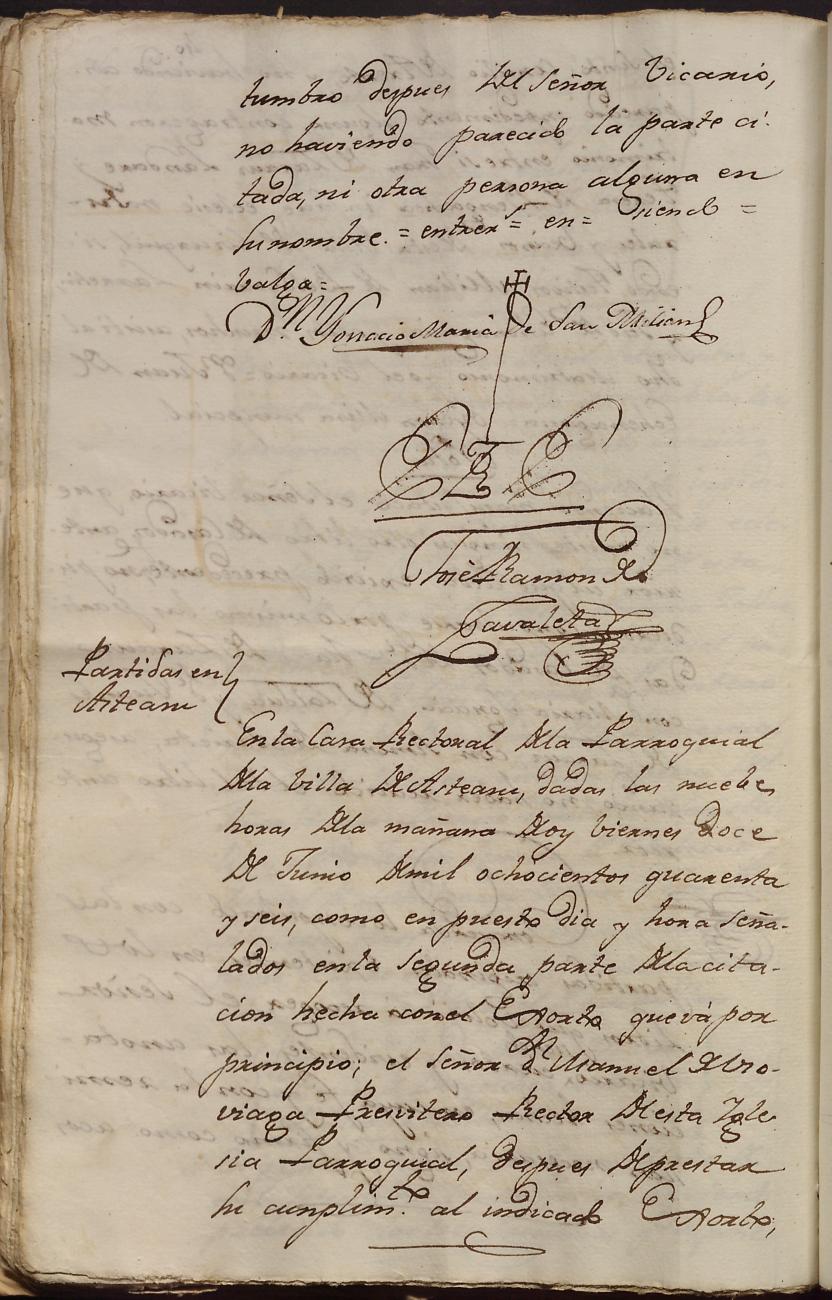 tumbro despues Del Señor Vicario,
no haviendo parecido la parte ci-
tada, ni otra persona alguna en
su nombre. = entrerr.s = en = siendo =
Valga =
D.n Ygnacio Maria De San Milian
José Ramon de
Zavaleta
Partidas en
Asteasu
En la Casa Rectoral Dla Parroquial
Dla Villa De Asteasu, dadas las nuebe
horas Dla mañana Doy Viernes Doce
De Junio Demil ochocientos quarenta
y seis, como en puesto dia y hora seña-
lados en la segunda parte Dla cita-
cion hecha con el Exorto que vá por
principio; el Señor D.n Manuel de
Presvitero Rector De esta Ygle
sia Parroquial, despues De prestar
su cumplim.to al indicado Exorto,